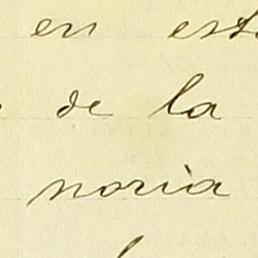 en est
de la
noria